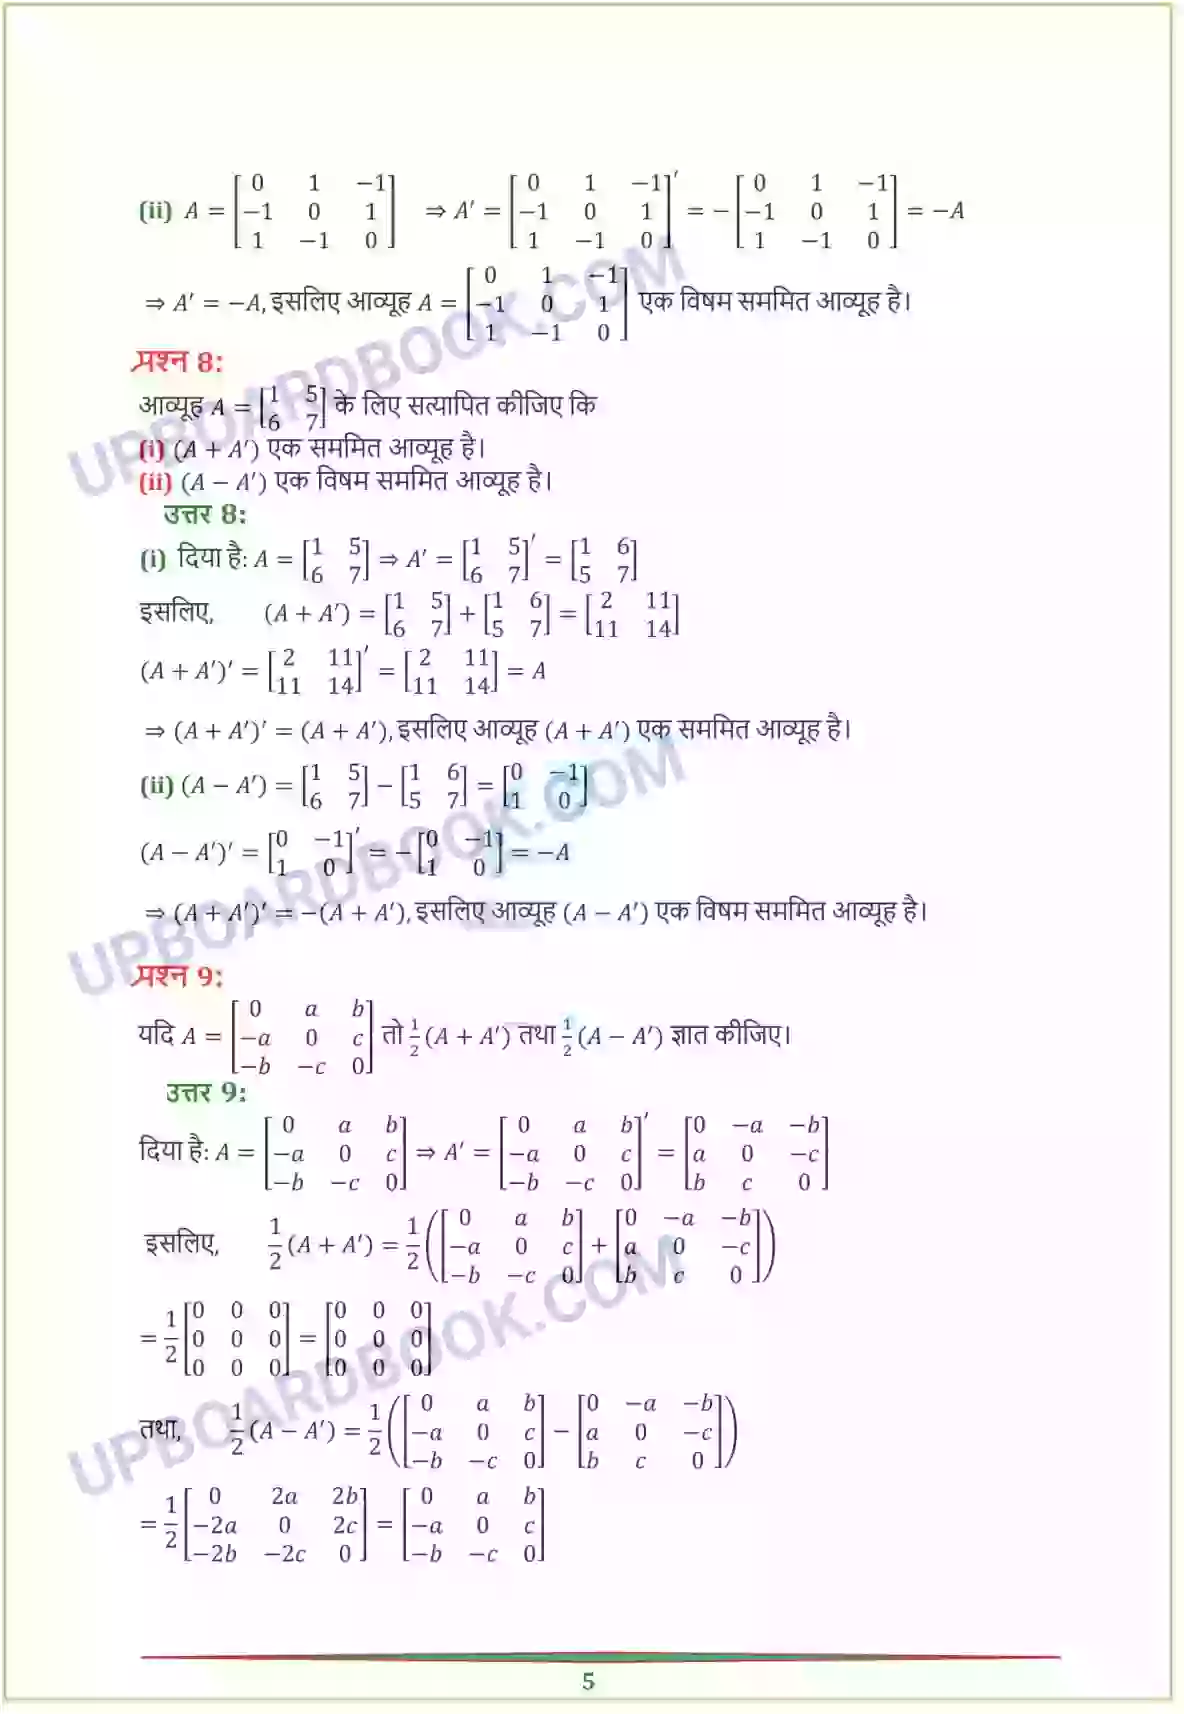 (ii) A = [0 1 −1; −1 0 1; 1 −1 0] ⇒ A′ = [0 1 −1; −1 0 1; 1 −1 0]′ = −[0 1 −1; −1 0 1; 1 −1 0] = −A
⇒ A′ = −A, इसलिए आव्यूह A = [0 1 −1; −1 0 1; 1 −1 0] एक विषम सममित आव्यूह है।
प्रश्न 8:
आव्यूह A = [1 5; 6 7] के लिए सत्यापित कीजिए कि
(i) (A + A′) एक सममित आव्यूह है।
(ii) (A − A′) एक विषम सममित आव्यूह है।
उत्तर 8:
(i) दिया है: A = [1 5; 6 7] ⇒ A′ = [1 5; 6 7]′ = [1 6; 5 7]
इसलिए, (A + A′) = [1 5; 6 7] + [1 6; 5 7] = [2 11; 11 14]
(A + A′)′ = [2 11; 11 14]′ = [2 11; 11 14] = A
⇒ (A + A′)′ = (A + A′), इसलिए आव्यूह (A + A′) एक सममित आव्यूह है।
(ii) (A − A′) = [1 5; 6 7] − [1 6; 5 7] = [0 −1; 1 0]
(A − A′)′ = [0 −1; 1 0]′ = −[0 −1; 1 0] = −A
⇒ (A + A′)′ = −(A + A′), इसलिए आव्यूह (A − A′) एक विषम सममित आव्यूह है।
प्रश्न 9:
यदि A = [0 a b; −a 0 c; −b −c 0] तो 1/2 (A + A′) तथा 1/2 (A − A′) ज्ञात कीजिए।
उत्तर 9:
दिया है: A = [0 a b; −a 0 c; −b −c 0] ⇒ A′ = [0 a b; −a 0 c; −b −c 0]′ = [0 −a −b; a 0 −c; b c 0]
इसलिए, 1/2 (A + A′) = 1/2 ([0 a b; −a 0 c; −b −c 0] + [0 −a −b; a 0 −c; b c 0])
= 1/2 [0 0 0; 0 0 0; 0 0 0] = [0 0 0; 0 0 0; 0 0 0]
तथा, 1/2 (A − A′) = 1/2 ([0 a b; −a 0 c; −b −c 0] − [0 −a −b; a 0 −c; b c 0])
= 1/2 [0 2a 2b; −2a 0 2c; −2b −2c 0] = [0 a b; −a 0 c; −b −c 0]
5
UPBOARDBOOK.COM
UPBOARDBOOK.COM
UPBOARDBOOK.COM